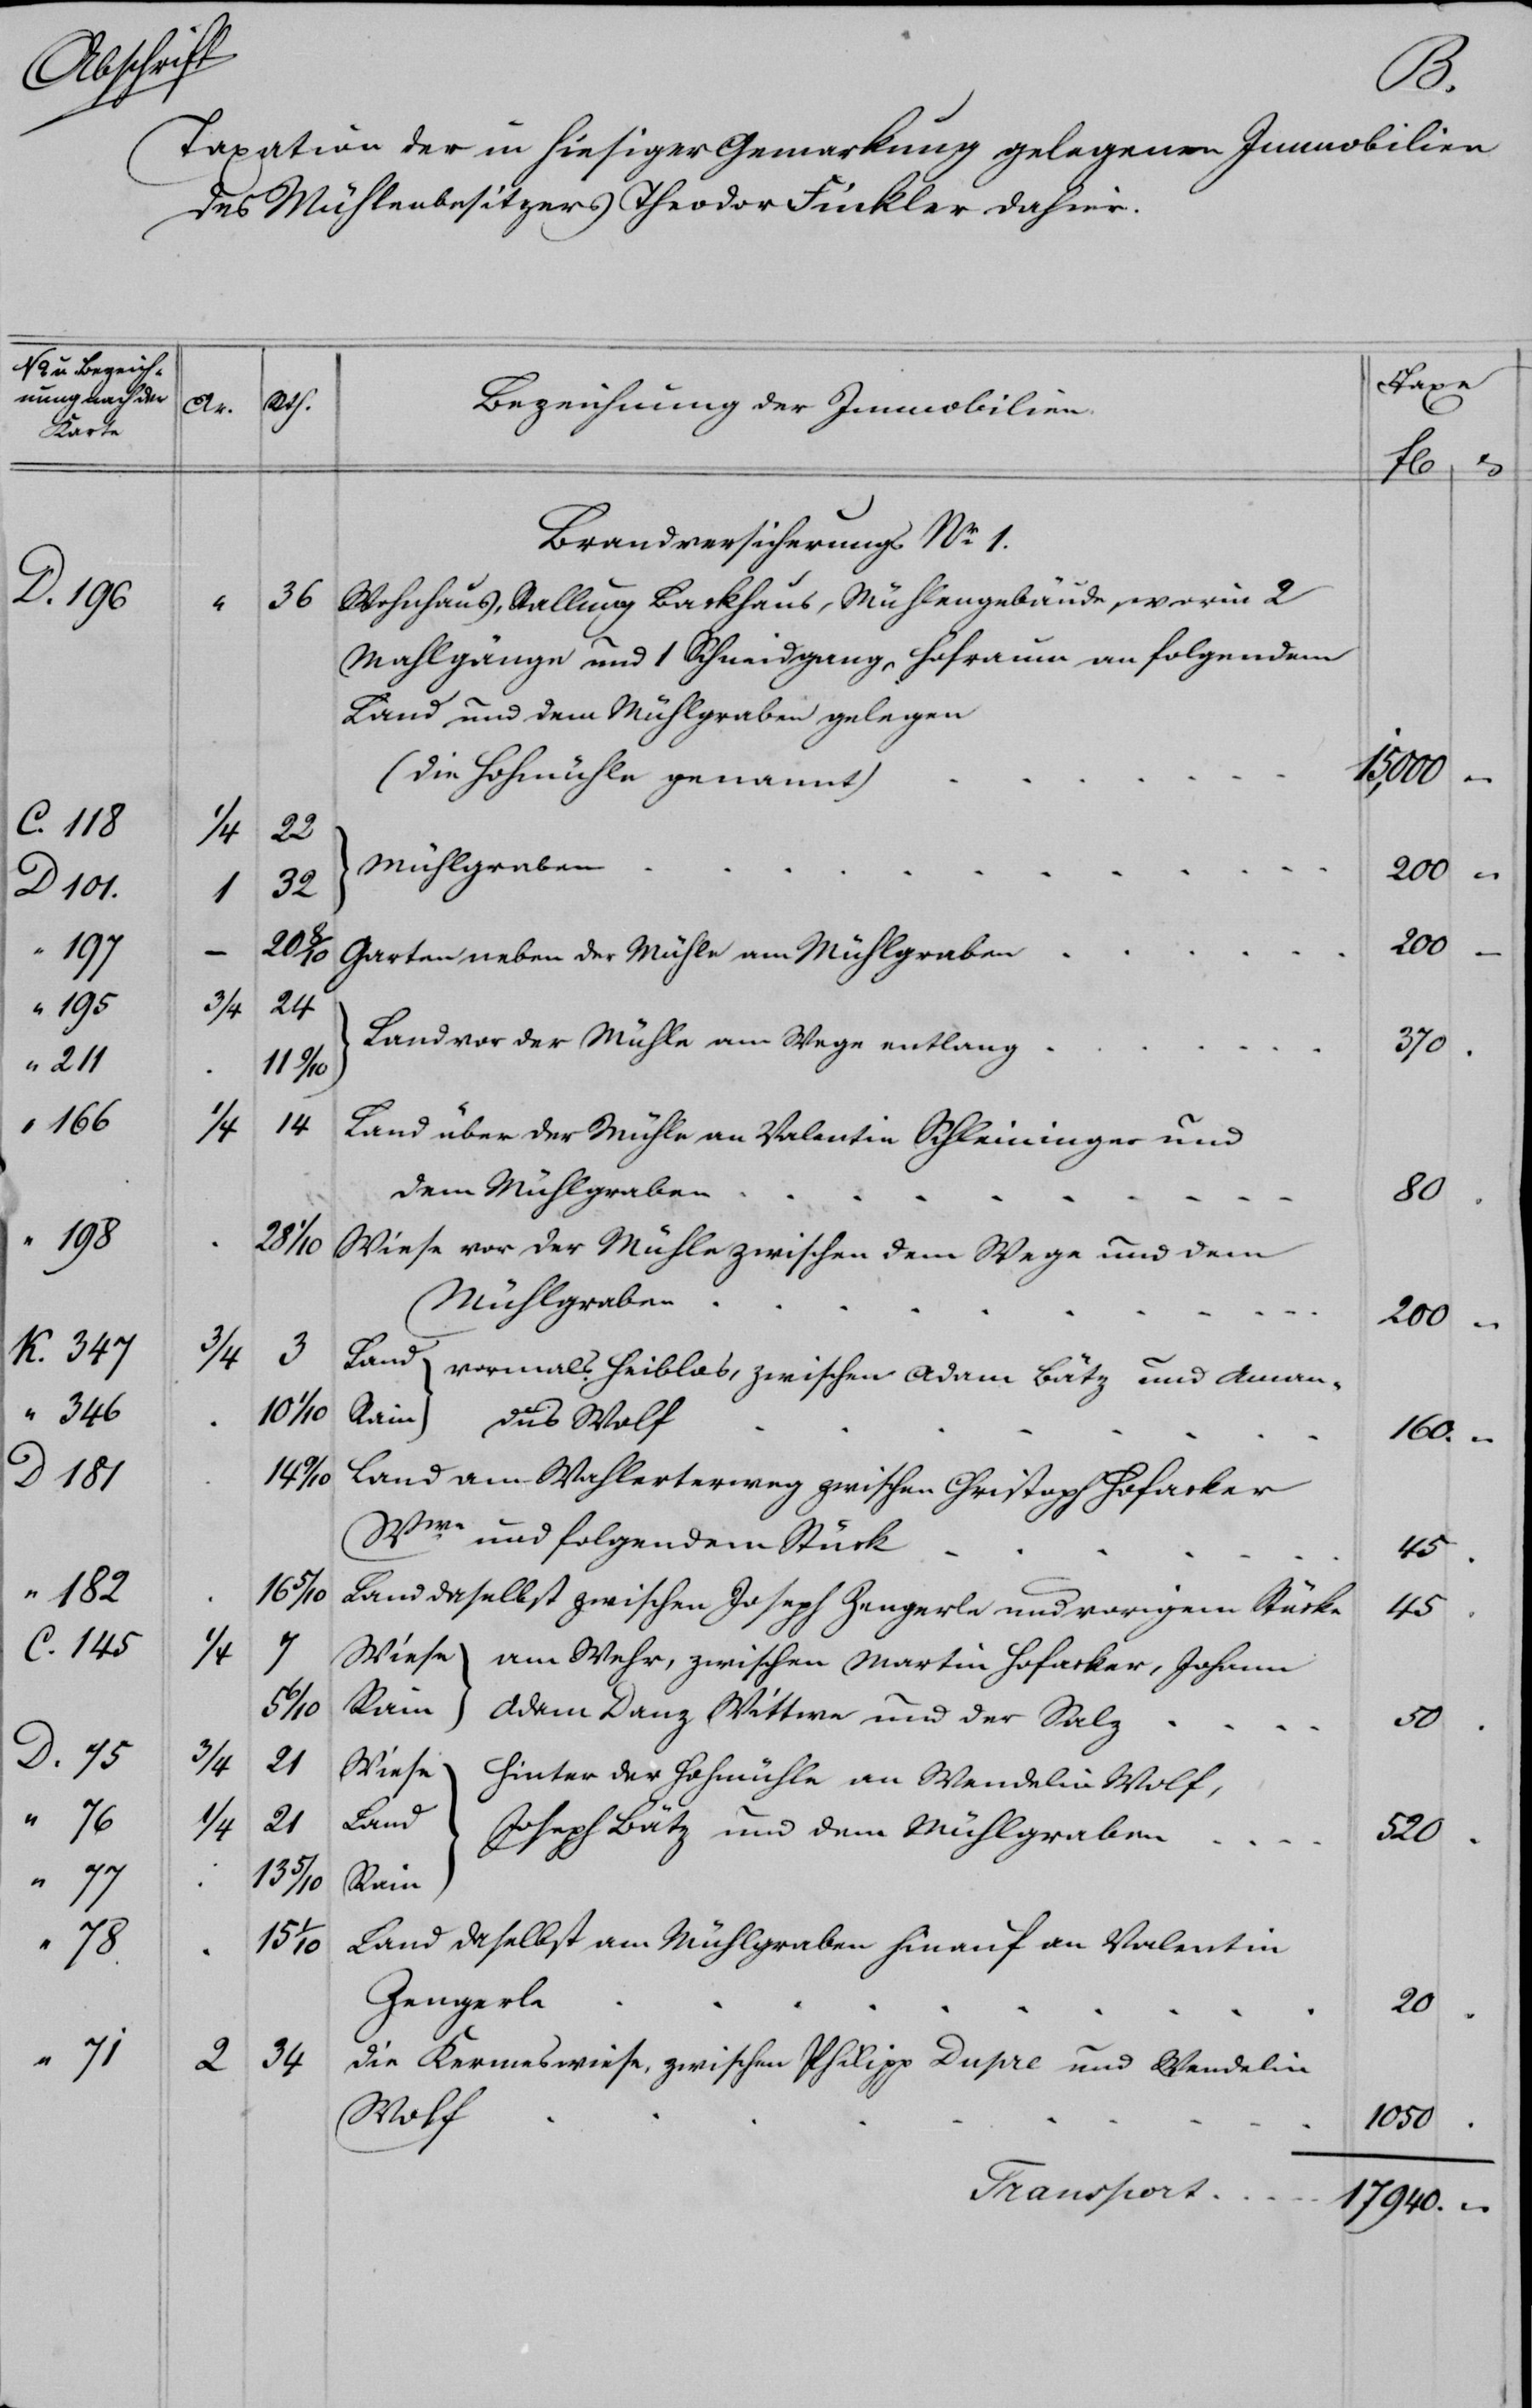 Abschrift
B.
Taxation der in hiesiger Gemarkung gelegenen Immobilien
des Mühlenbesitzers Theodor Finkler dahier.
No u Bezeich-
nung nach der
Karte
Ar.
Rth.
Bezeichnung der Immobilien.
Taxe
fl
Brandversicherungs Nr 1.
D. 196 " 36 Wohnhaus, Stallung Backhaus, Mühlengebäude, worin 2
Mahlgänge und 1 Schneidgang, Hofraum an folgendem
Land und dem Mühlgraben gelegen
(die Hohmühle genannt) . . . . . . 15,000 –
C. 118 1/4 22
Mühlgraben . . . . . . . . . . 200 "
D 101. 1 32
" 197 – 20 8/10 Garten neben der Mühle am Mühlgraben . . . . . . 200 –
" 195 3/4 24
Land vor der Mühle am Wege entlang . . . . . . 370 .
" 211 . 11 9/10
" 166 1/4 14 Land über der Mühle an Valentin Schleininger und
dem Mühlgraben . . . . . . . . . 80 .
" 198 . 28 1/10 Wiese vor der Mühle zwischen dem Wege und dem
Mühlgraben . . . . . . . . . . 200 "
K. 347 3/4 3 Land } vormals Heiblos, zwischen Adam Bätz und Aman-
" 346 . 10 1/10 Rain } dus Wolf . . . . . . . . 160. "
D 181 . 14 9/10 Land am Wahlerterweg zwischen Christoph Hofacker
Wwe und folgendem Stück . . . . . . . 45 .
" 182 . 16 5/10 Land daselbst zwischen Joseph Zengerle und vorigem Stücke 45 .
C. 145 1/4 7 Wiese } am Wehr, zwischen Martin Hofacker, Johann
5 6/10 Rain } Adam Danz Wittwe und der Salz . . . . 50 .
D. 75 3/4 21 Wiese } hinter der Hohmühle an Wendelin Wolf,
" 76 1/4 21 Land } Joseph Bätz und dem Mühlgraben . . . . 520 .
" 77 . 13 5/10 Rain }
" 78. . 15 1/10 Land daselbst am Mühlgraben hinauf an Valentin
Zengerle . . . . . . . . . . 20 .
" 71 2 34 die Kermeswiese, zwischen Philipp Dupre und Wendelin
Wolf . . . . . . . . . 1050 .
Transport . . . . 17940. "